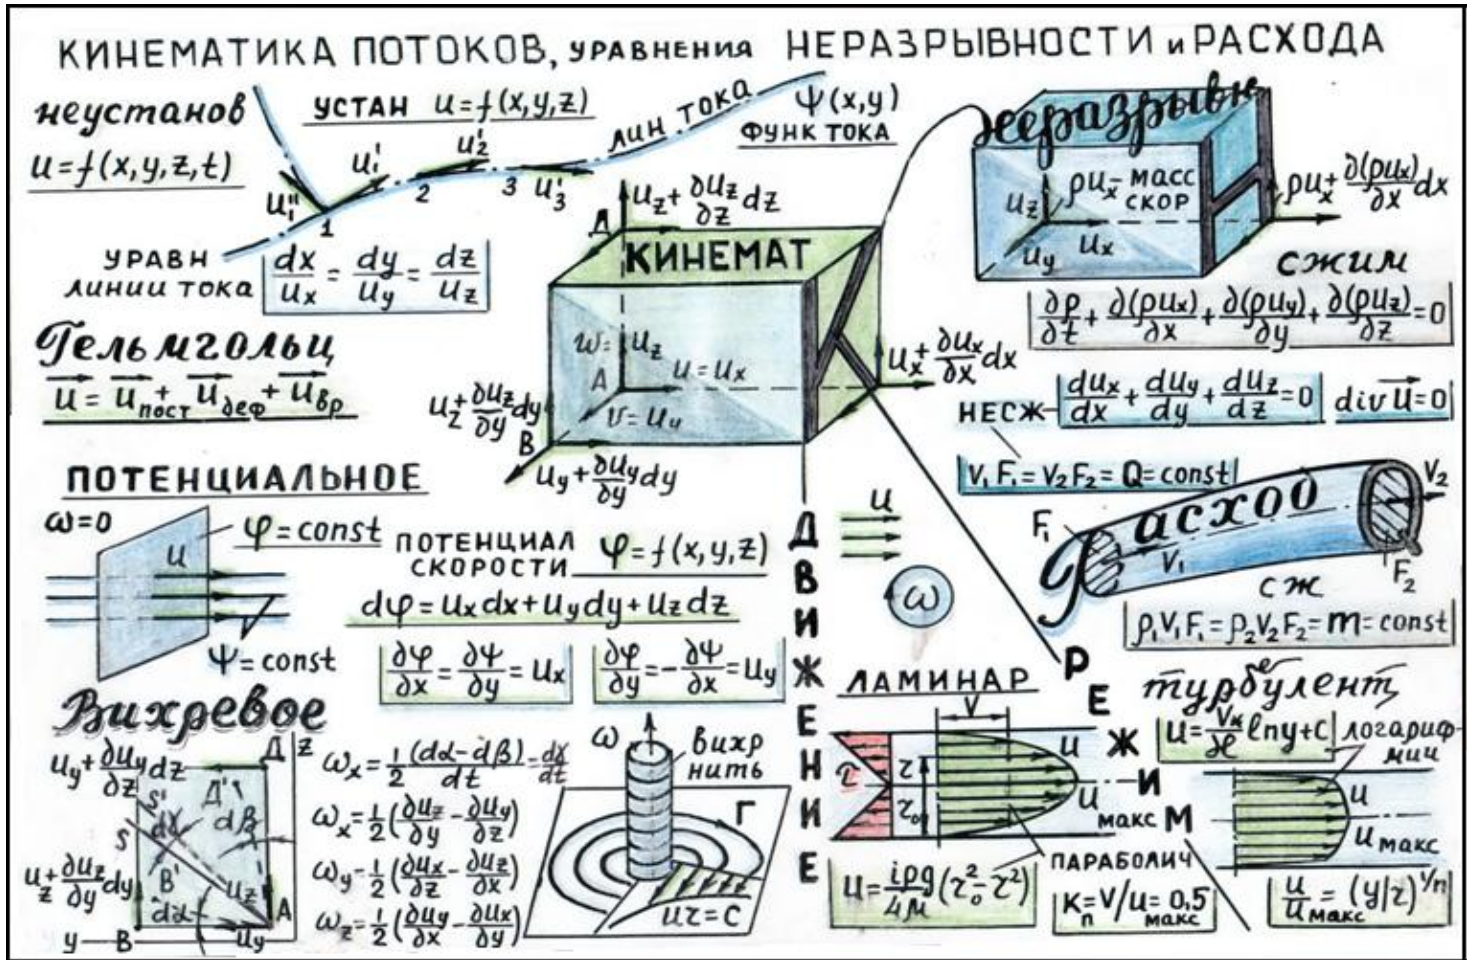 КИНЕМАТИКА ПОТОКОВ, УРАВНЕНИЯ НЕРАЗРЫВНОСТИ и РАСХОДА
неустанов
u=f(x,y,z,t)
УСТАН u=f(x,y,z)
ЛИН ТОКА
Ψ(x,y)
ФУНК ТОКА
u₁''
u₁'
u₂'
u₃'
1
2
3
УРАВН
ЛИНИИ ТОКА
dx/uₓ = dy/u_y = dz/u_z
Гельмгольц
u = u_пост + u_деф + u_вр
КИНЕМАТ
Д
u_z + ∂u_z/∂z dz
ω= u_z
А
u = uₓ
v = u_y
uₓ + ∂uₓ/∂x dx
u_z + ∂u_z/∂y dy
В
u_y + ∂u_y/∂y dy
неразрывн
ρuₓ - МАСС
СКОР
u_z
uₓ
u_y
ρuₓ + ∂(ρuₓ)/∂x dx
СЖИМ
∂ρ/∂t + ∂(ρuₓ)/∂x + ∂(ρu_y)/∂y + ∂(ρu_z)/∂z = 0
НЕСЖ
duₓ/dx + du_y/dy + du_z/dz = 0
div u = 0
V₁F₁ = V₂F₂ = Q = const
Расход
F₁
V₁
V₂
F₂
СЖ
ρ₁V₁F₁ = ρ₂V₂F₂ = m = const
ПОТЕНЦИАЛЬНОЕ
ω=0
u
φ = const
Ψ = const
ПОТЕНЦИАЛ
СКОРОСТИ
φ = f(x,y,z)
dφ = uₓdx + u_ydy + u_zdz
∂φ/∂x = ∂Ψ/∂y = uₓ
∂φ/∂y = -∂Ψ/∂x = u_y
ДВИЖЕНИЕ
u
ω
РЕЖИМ
Вихревое
u_y + ∂u_y/∂z dz
Д
z
S'
S
Д'
dγ
dβ
B'
u_z + ∂u_z/∂y dy
dα
u_z
А
y
В
u_y
ωₓ = 1/2 (dα - dβ)/dt = dγ/dt
ωₓ = 1/2 (∂u_z/∂y - ∂u_y/∂z)
ω_y = 1/2 (∂uₓ/∂z - ∂u_z/∂x)
ω_z = 1/2 (∂u_y/∂x - ∂uₓ/∂y)
ω
вихр
нить
Г
uτ = C
ЛАМИНАР
V
τ
τ
τ₀
u
u макс
ПАРАБОЛИЧ
u = iρg/4μ (τ₀² - τ²)
K_п = V/u макс = 0,5
турбулент
u = V*/ϰ ln y + C
логариф-
мич
u
u макс
u/u макс = (y/τ)^1/n